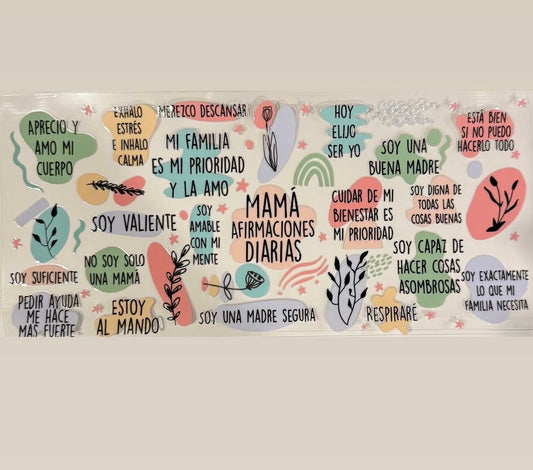 APRECIO Y
AMO MI
CUERPO
EXHALO
ESTRÉS
E INHALO
CALMA
MEREZCO DESCANSAR
MI FAMILIA
ES MI PRIORIDAD
Y LA AMO
HOY
ELIJO
SER YO
SOY UNA
BUENA MADRE
ESTÁ BIEN
SI NO PUEDO
HACERLO TODO
SOY VALIENTE
SOY
AMABLE
CON MI
MENTE
MAMÁ
AFIRMACIONES
DIARIAS
CUIDAR DE MI
BIENESTAR ES
MI PRIORIDAD
SOY DIGNA DE
TODAS LAS
COSAS BUENAS
NO SOY SOLO
UNA MAMÁ
SOY CAPAZ DE
HACER COSAS
ASOMBROSAS
SOY SUFICIENTE
SOY EXACTAMENTE
LO QUE MI
FAMILIA NECESITA
PEDIR AYUDA
ME HACE
MÁS FUERTE
ESTOY
AL MANDO
SOY UNA MADRE SEGURA
RESPIRARÉ